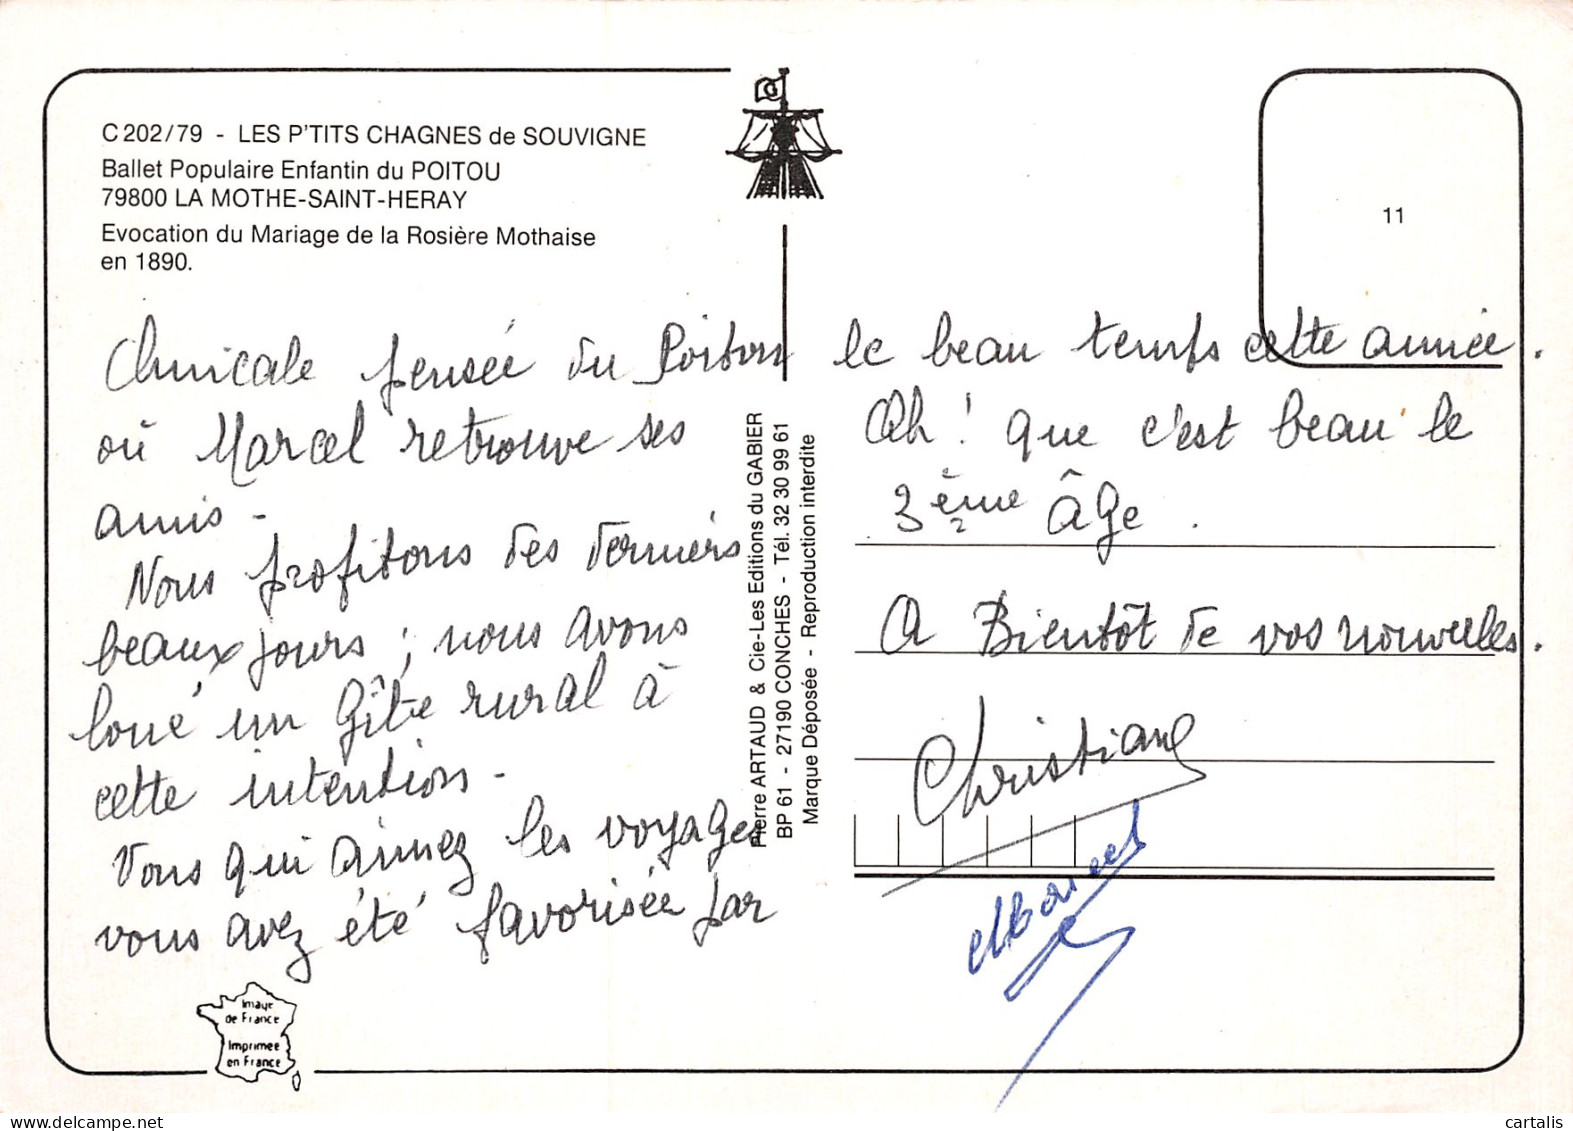 C 202/79 - LES P'TITS CHAGNES de SOUVIGNE
Ballet Populaire Enfantin du POITOU
79800 LA MOTHE-SAINT-HERAY
Evocation du Mariage de la Rosière Mothaise
en 1890.
Amicale pensée du Poitou
où Marcel retrouve ses
amis -
Nous profitons des derniers
beaux jours ; nous avons
loué un gîte rural à
cette intention -
Vous qui aimez les voyages
vous avez été favorisée par
Image
de France
Imprimee
en France
Pierre ARTAUD & Cie-Les Editions du GABIER
BP 61 - 27190 CONCHES - Tél. 32 30 99 61
Marque Déposée - Reproduction interdite
G
11
le beau temps cette année.
Ah ! que c'est beau le
3ème âge .
A Bientôt de vos nouvelles.
Christiane
Marcel
cartalis